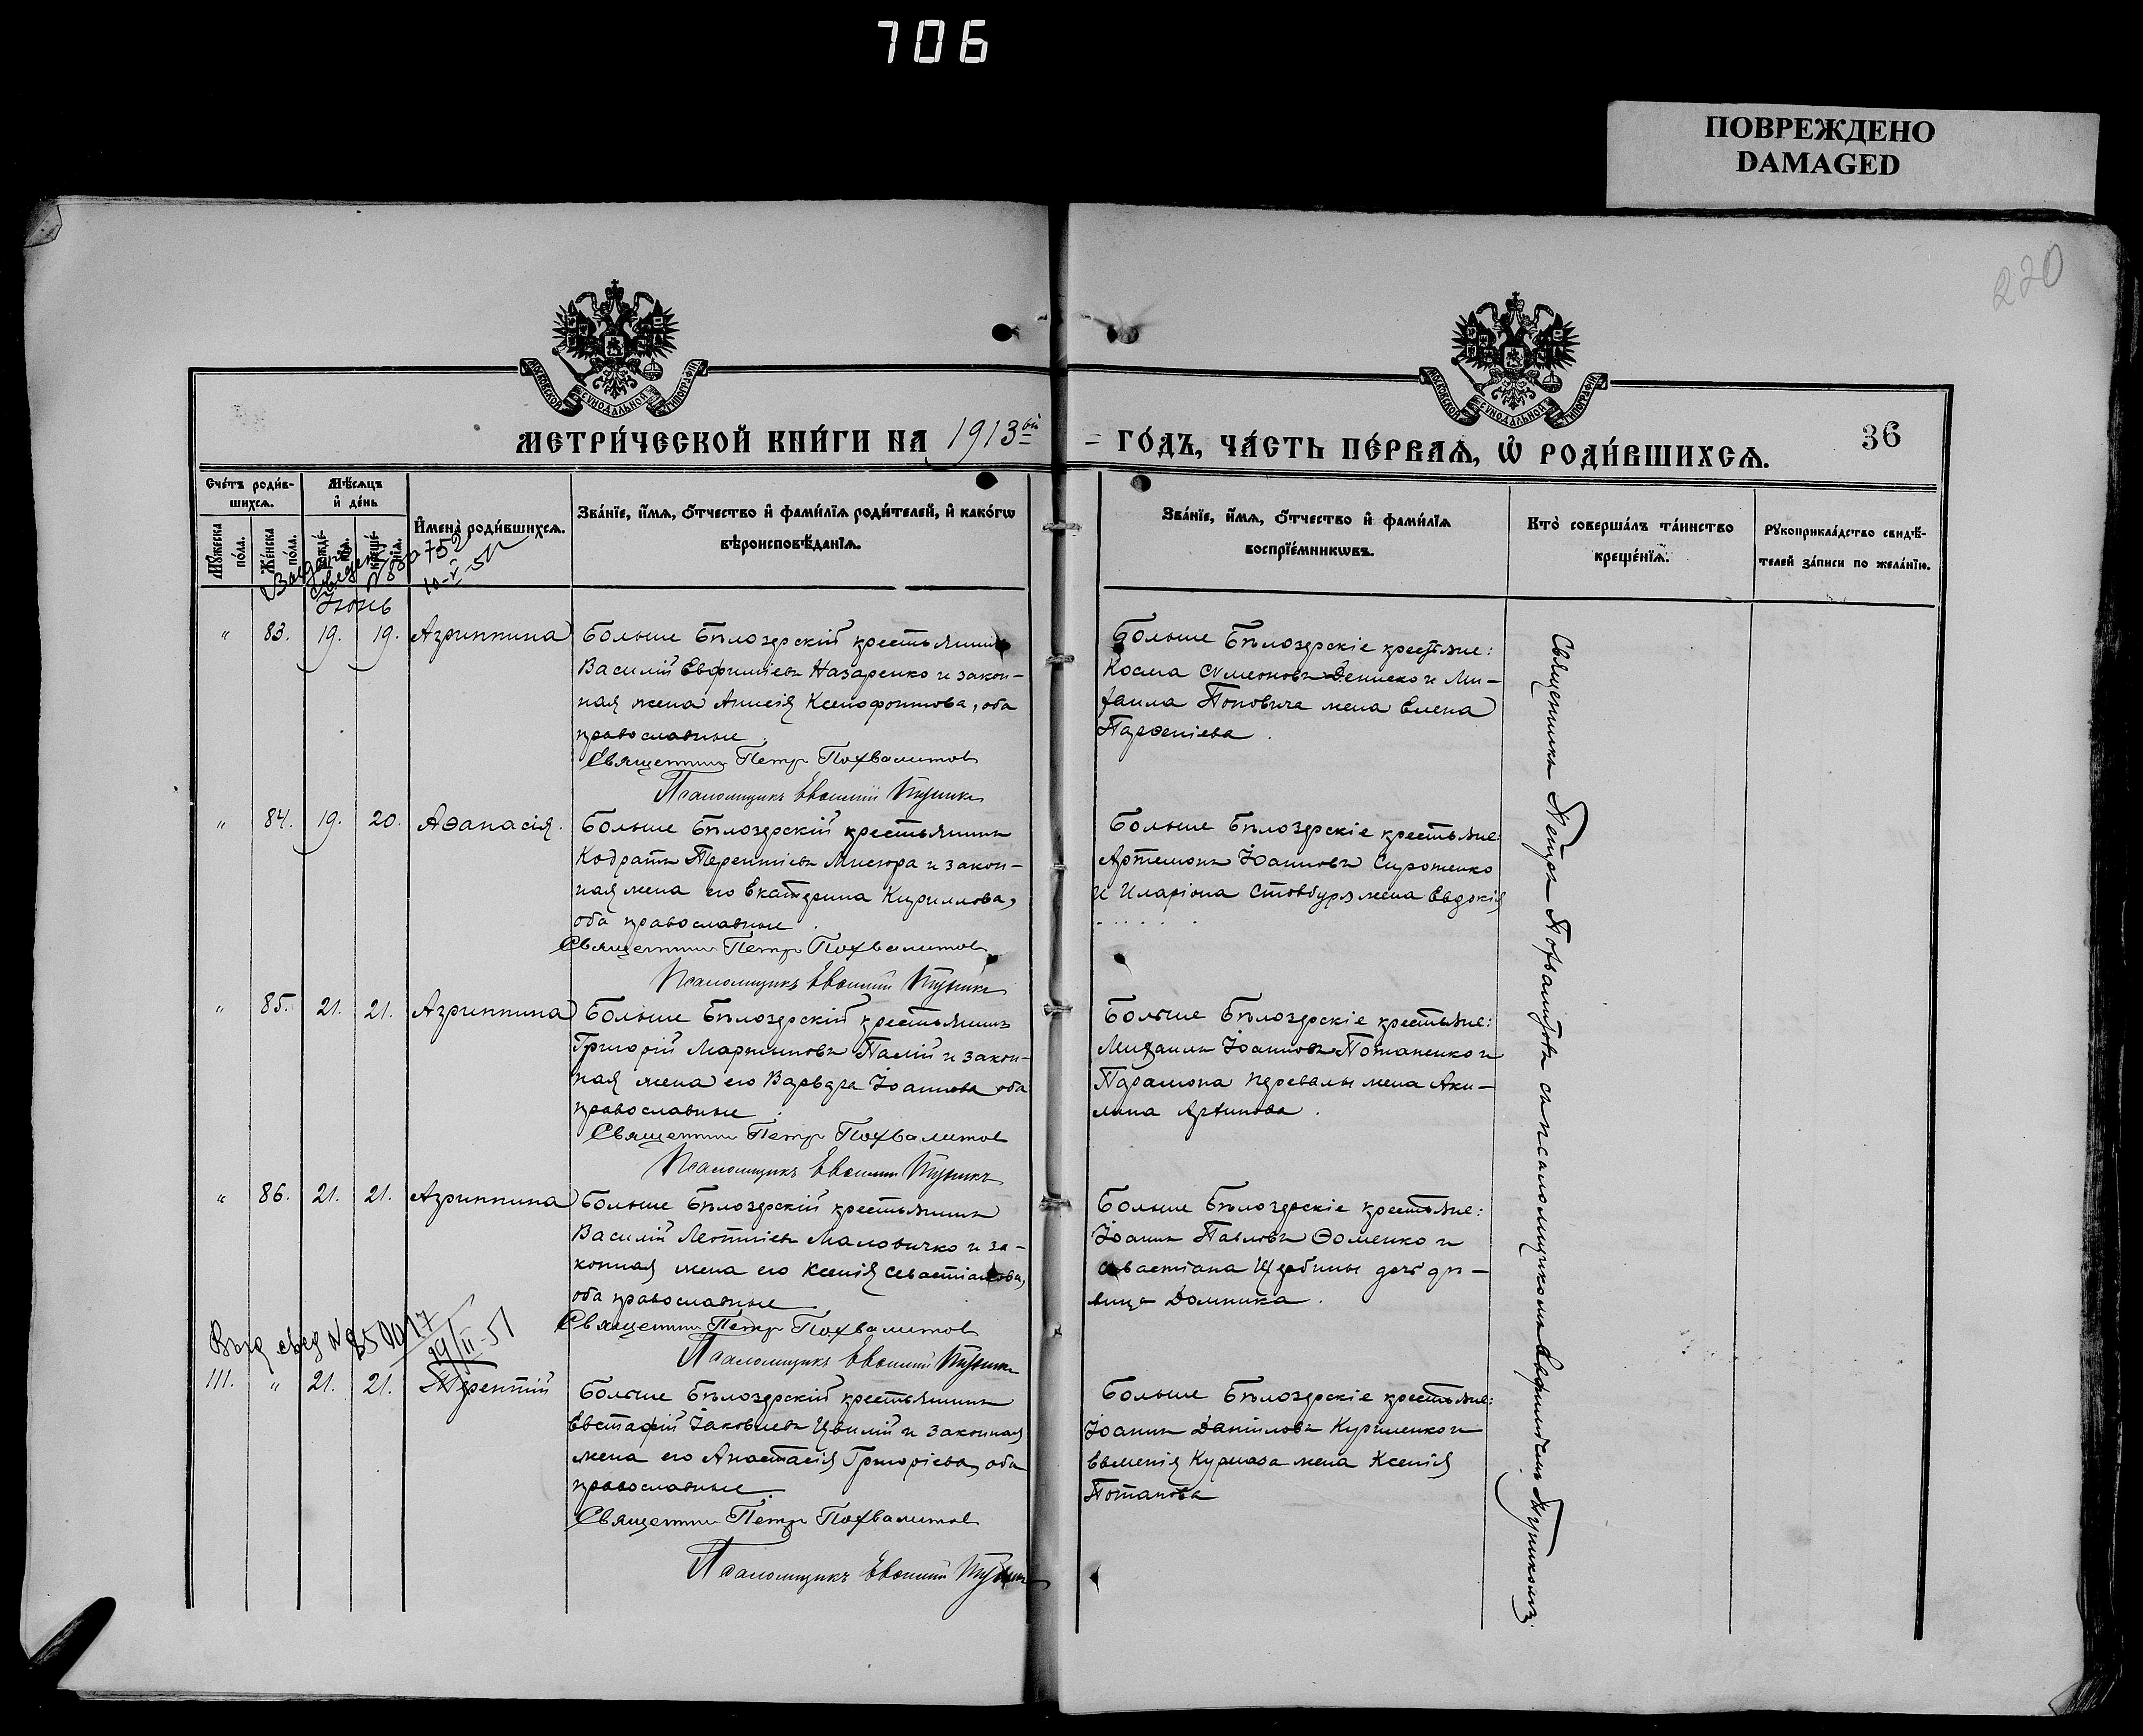 706
ПОВРЕЖДЕНО
DAMAGED
220
МОСКОВСКОЙ СѴНОДАЛЬНОЙ ТИПОГРАФІИ
МОСКОВСКОЙ СѴНОДАЛЬНОЙ ТИПОГРАФІИ
МЕТРИ́ЧЕСКОЙ КНИ́ГИ НА 1913ый
ГО́ДЪ, ЧА́СТЬ ПЕ́РВАѦ, Ѡ РОДИ́ВШИХСѦ.
36
Сче́тъ роди́в-
шихсѧ.
Мꙋ́жеска
по́ла.
Же́нска
по́ла.
Мѣ́сѧцъ
и де́нь
рожде́-
нїѧ.
креще́-
нїѧ.
И҆мена̀ роди́вшихсѧ.
Зва́нїе, и҆́мѧ, ѻ҆́тчество и҆ фами́лїѧ роди́телей, и҆ како́гѡ
вѣроисповѣ́данїѧ.
Зва́нїе, и҆́мѧ, ѻ҆́тчество и҆ фами́лїѧ
воспрїе́мникѡвъ.
Кто̀ соверша́лъ та́инство
креще́нїѧ.
Рꙋкоприкла́дство свидѣ́-
телей за́писи по жела́нїю.
Іюнь
" 83. 19. 19. Агриппина
Больше Бѣлозерскій крестьянинъ
Василій Евфиміевъ Назаренко и закон-
ная жена Анисія Ксенофонтова, оба
православные.
Священникъ Петръ Похвалитовъ
Псаломщикъ Евфимій
Больше Бѣлозерскіе крестьяне:
Косма Симеоновъ Денисеко и Ми-
хаила Поповича жена Елена
Парѳеніева.
" 84. 19. 20. Аѳанасія.
Больше Бѣлозерскій крестьянинъ
Кодратъ Терентіевъ Мисюра и закон-
ная жена его Екатерина Кириллова,
оба православные.
Священникъ Петръ Похвалитовъ
Псаломщикъ Евфимій
Больше Бѣлозерскіе крестьяне:
Артемонъ Іоанновъ Сиротенко
и Иларіона Стовбура жена Евдокія
" 85. 21. 21. Агриппина
Больше Бѣлозерскій крестьянинъ
Григорій Мартыновъ Палій и закон-
ная жена его Варвара Іоаннова оба
православные.
Священникъ Петръ Похвалитовъ
Псаломщикъ Евфимій
Больше Бѣлозерскіе крестьяне:
Михаилъ Іоанновъ Потапенко и
Парамона Перевалы жена Аки-
лина Архипова.
" 86. 21. 21. Агриппина
Больше Бѣлозерскій крестьянинъ
Василій Леонтіевъ Маловичко и за-
конная жена его Ксенія Севастіанова,
оба православные.
Священникъ Петръ Похвалитовъ
Псаломщикъ Евфимій
Больше Бѣлозерскіе крестьяне:
Іоаннъ Павловъ Ѳоменко и
Севастіана Щербины дочь дѣ-
вица Домника.
111. " 21. 21. Терентій
Больше Бѣлозерскій крестьянинъ
Евстафій Іаковлевъ Цвилій и законная
жена его Анастасія Григоріева, оба
православные.
Священникъ Петръ Похвалитовъ
Псаломщикъ Евфимій
Больше Бѣлозерскіе крестьяне:
Іоаннъ Даніиловъ Куриленко и
Евменія Курмаза жена Ксенія
Потапова
Священникъ Петръ Похвалитовъ съ псаломщикомъ Евфиміемъ